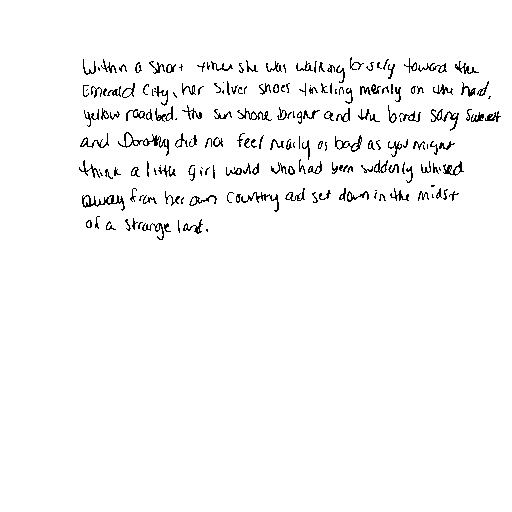 Within a short time she was walking brisely toward the
Emerald City, her Silver Shoes tinkling merrily on the hard,
yellow roadbed. The sun shone bright and the birds sang sweet
and Dorothy did not feel nearly as bad as you might
think a little girl would who had been suddenly whised
away from her own country and set down in the midst
of a strange land.